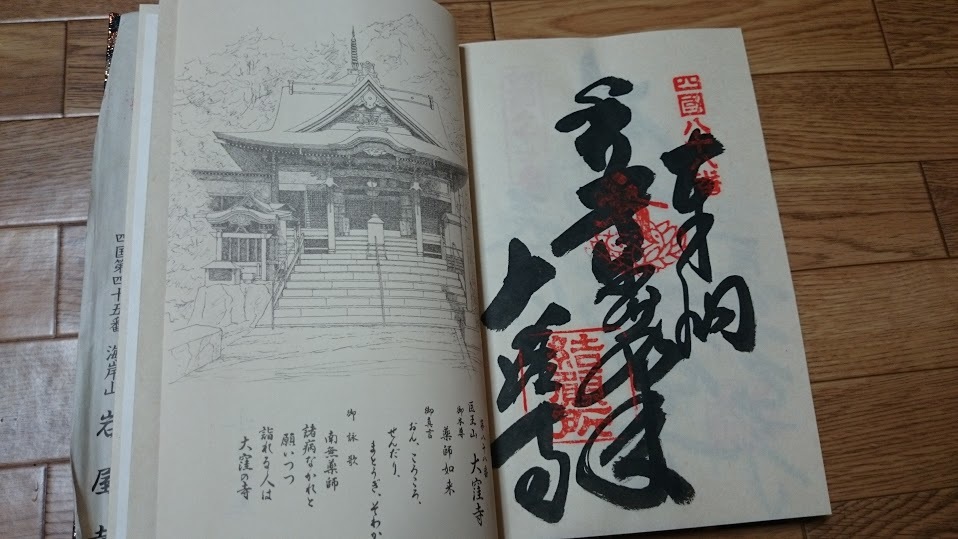 四國八十八番
奉納
大窪寺
結願所
第八十八番
医王山 大窪寺
御本尊
薬師如来
御真言
おん、ころころ、
せんだり、
まとうぎ、そわか
御詠歌
南無薬師
諸病なかれと
願いつつ
詣れる人は
大窪の寺
四国第四十五番 海岸山 岩屋寺